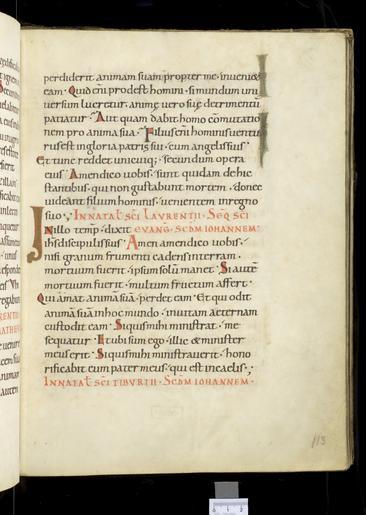 perdiderit animam suam propter me · inueniet
eam · Quid eni prodest homini · si mundum uni
uersum lucretur · anime uero sue detrimentū
patiatur · Aut quam dabit homo cōmutatio
nem pro anima sua · Filius eni hominis uentu
rus est in gloria patris sui · cum angelis suis ·
Et tunc reddet unicuiq; secundum opera
eius · Amen dico uobis · sunt quidam de hic
stantibus · qui non gustabunt mortem · donec
uideant filium hominis · uenientem in regno
suo ·, In nat̄ sc̄i Laurentii · Seq̄ sc̄i
In illo temp̄ · dixit evang · scdm Iohannem ·
ih̄s discipulis suis · Amen amen dico uobis ·
nisi granum frumenti cadens in terram ·
mortuum fuerit · ipsum solū manet · Si autē
mortuum fuerit · multum fructum affert ·
Qui amat animā suā · perdet eam · Et qui odit
animam suā in hoc mundo · in uitam aeternam
custodit eam · Si quis mihi ministrat · me
sequatur · Et ubi sum ego · illic & minister
meus erit · Si quis mihi ministrauerit · hono
rificabit eum pater meus · qui est in caelis ·,
In nat̄ sc̄i Tiburtii · scdm Iohannem ·
113